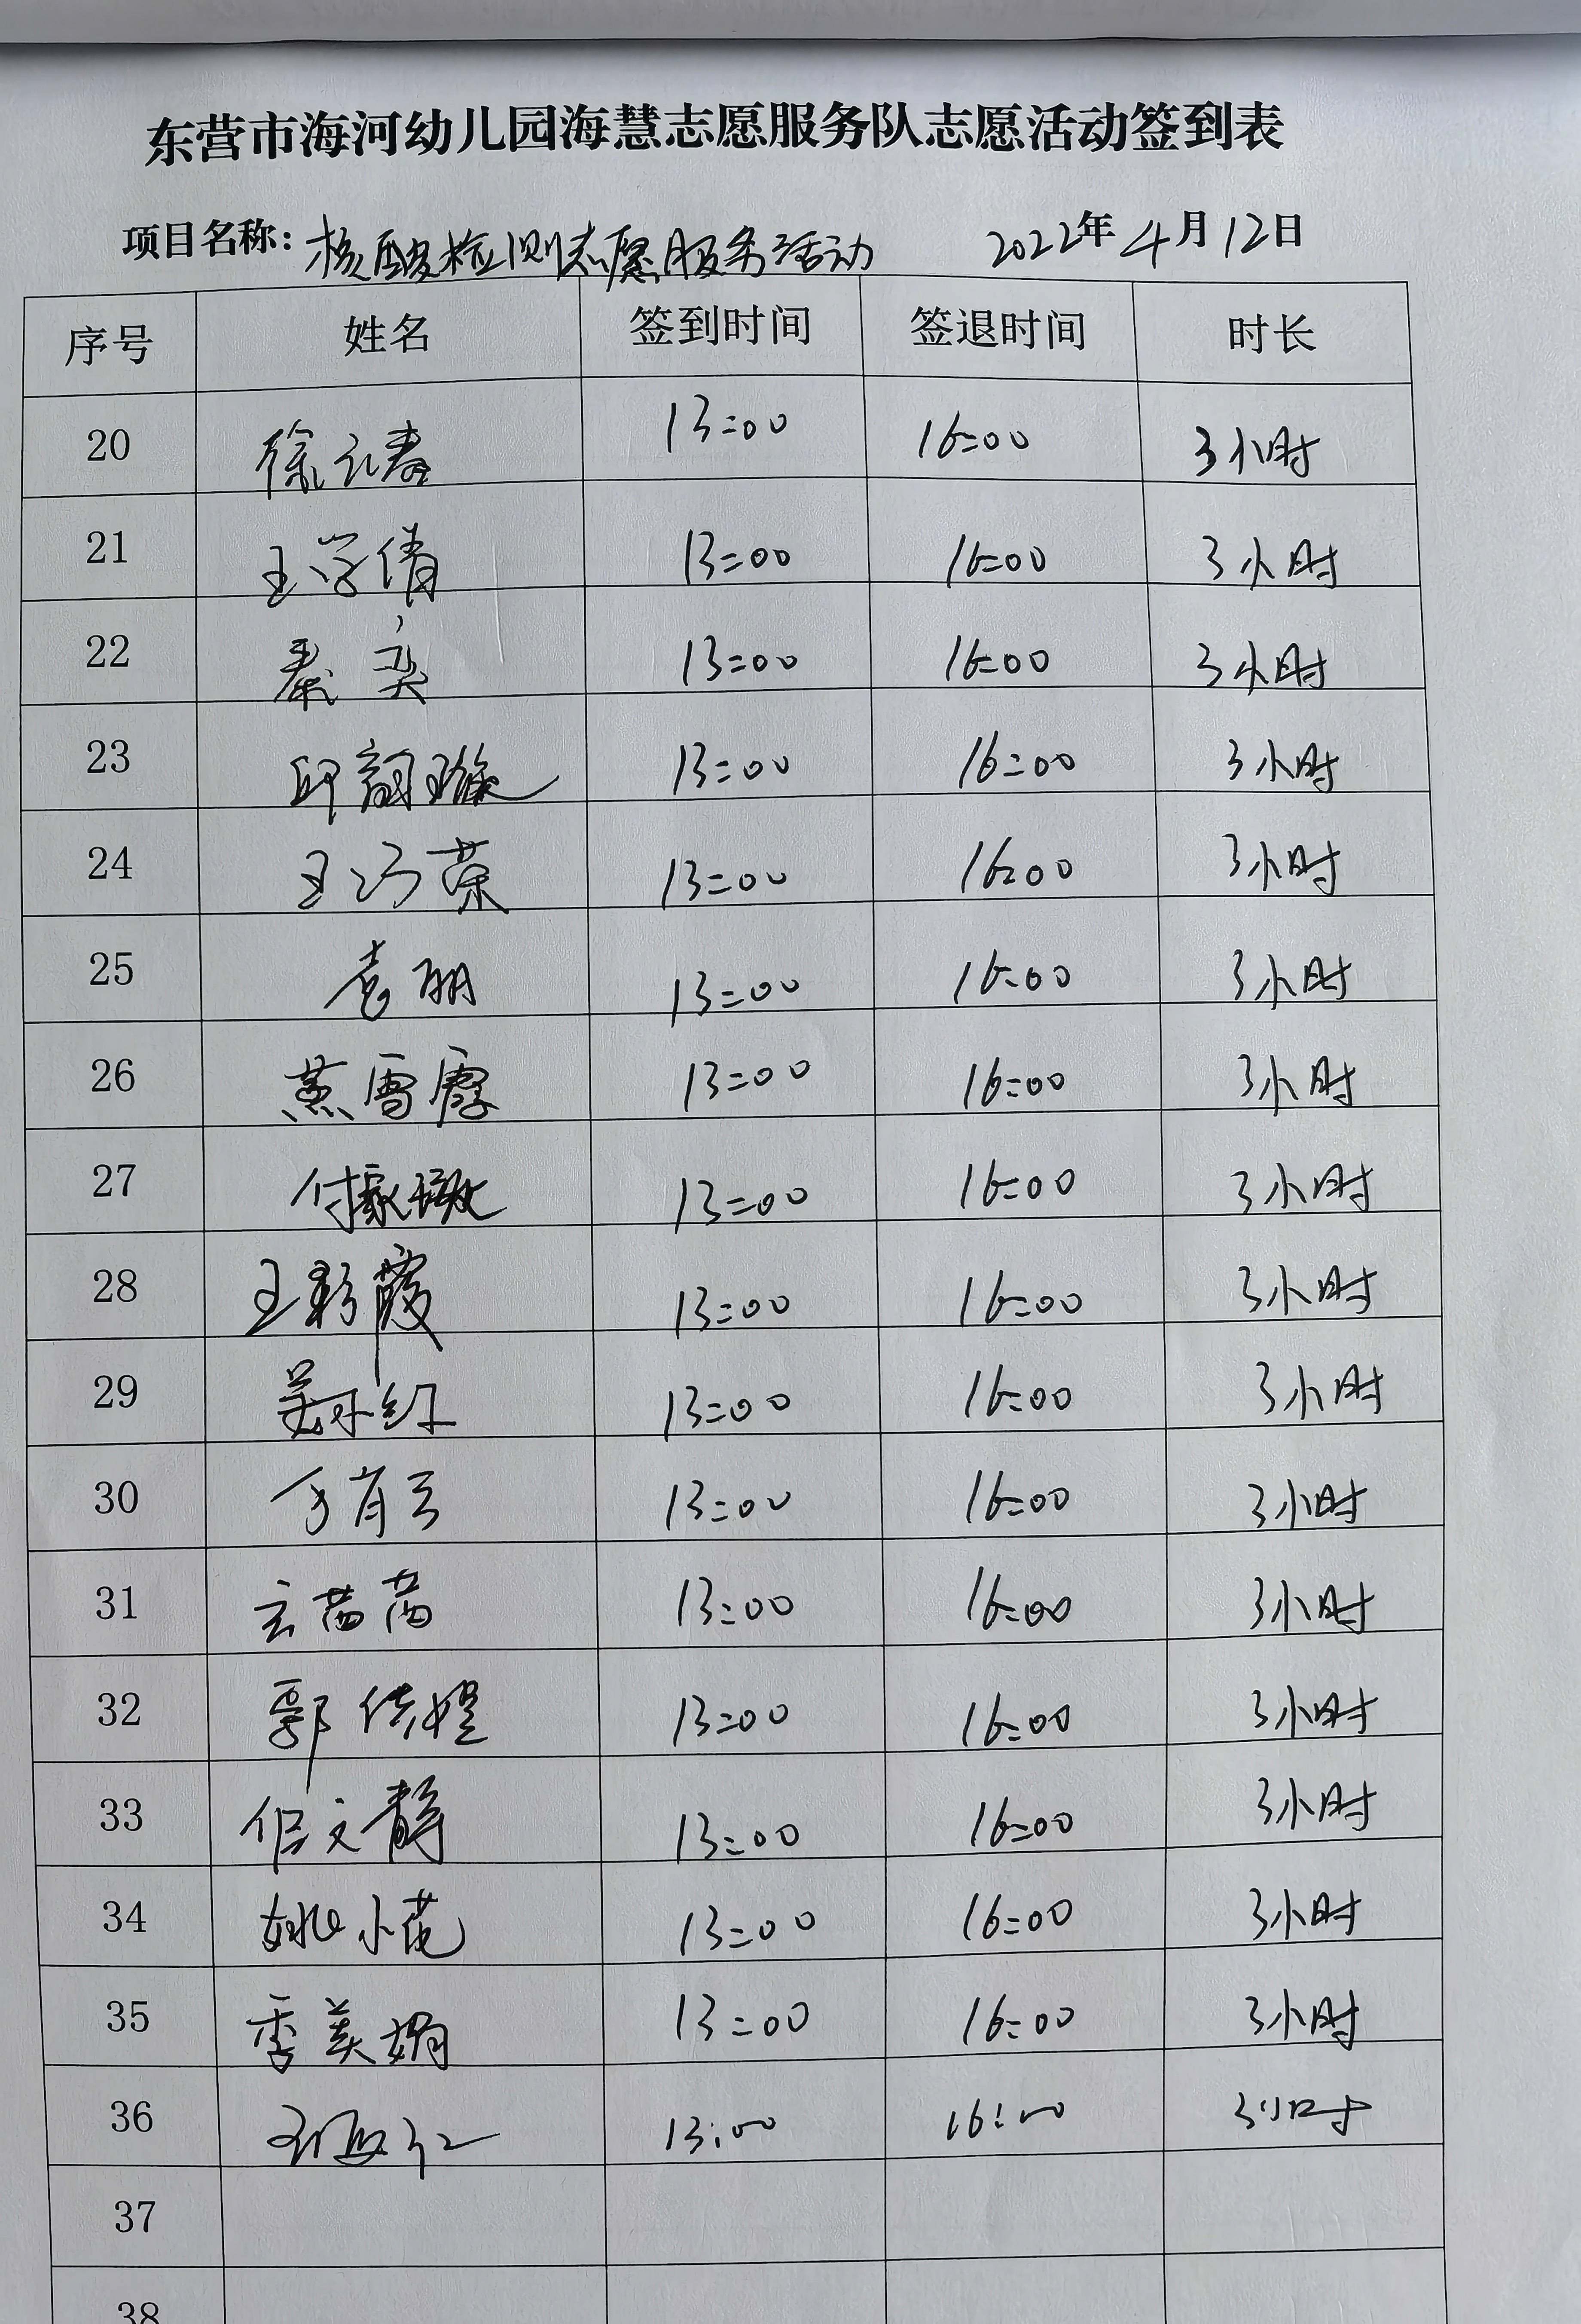 东营市海河幼儿园海慧志愿服务队志愿活动签到表
项目名称：核酸检测志愿服务活动 2022年4月12日
序号 姓名 签到时间 签退时间 时长
20 徐元春 13:00 16:00 3小时
21 王学倩 13:00 16:00 3小时
22 秦奕 13:00 16:00 3小时
23 邱韵璇 13:00 16:00 3小时
24 王巧荣 13:00 16:00 3小时
25 袁丽 13:00 16:00 3小时
26 燕雪 13:00 16:00 3小时
27 付家 13:00 16:00 3小时
28 王彩霞 13:00 16:00 3小时
29 红 13:00 16:00 3小时
30 13:00 16:00 3小时
31 云茜茜 13:00 16:00 3小时
32 郭 13:00 16:00 3小时
33 文静 13:00 16:00 3小时
34 姚小花 13:00 16:00 3小时
35 季美娟 13:00 16:00 3小时
36 13:00 16:00 3小时
37
38